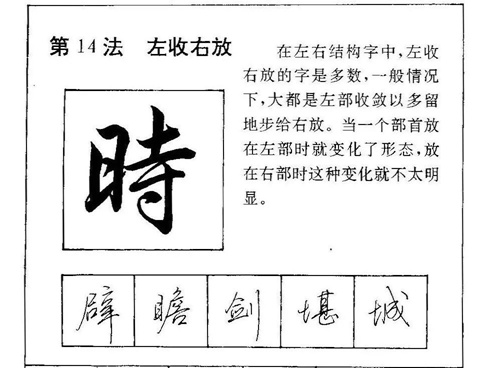 第14法 左收右放
在左右结构字中，左收
右放的字是多数，一般情况
下，大都是左部收敛以多留
地步给右放。当一个部首放
在左部时就变化了形态，放
在右部时这种变化就不太明
显。
時
辟 瞻 剑 堪 城